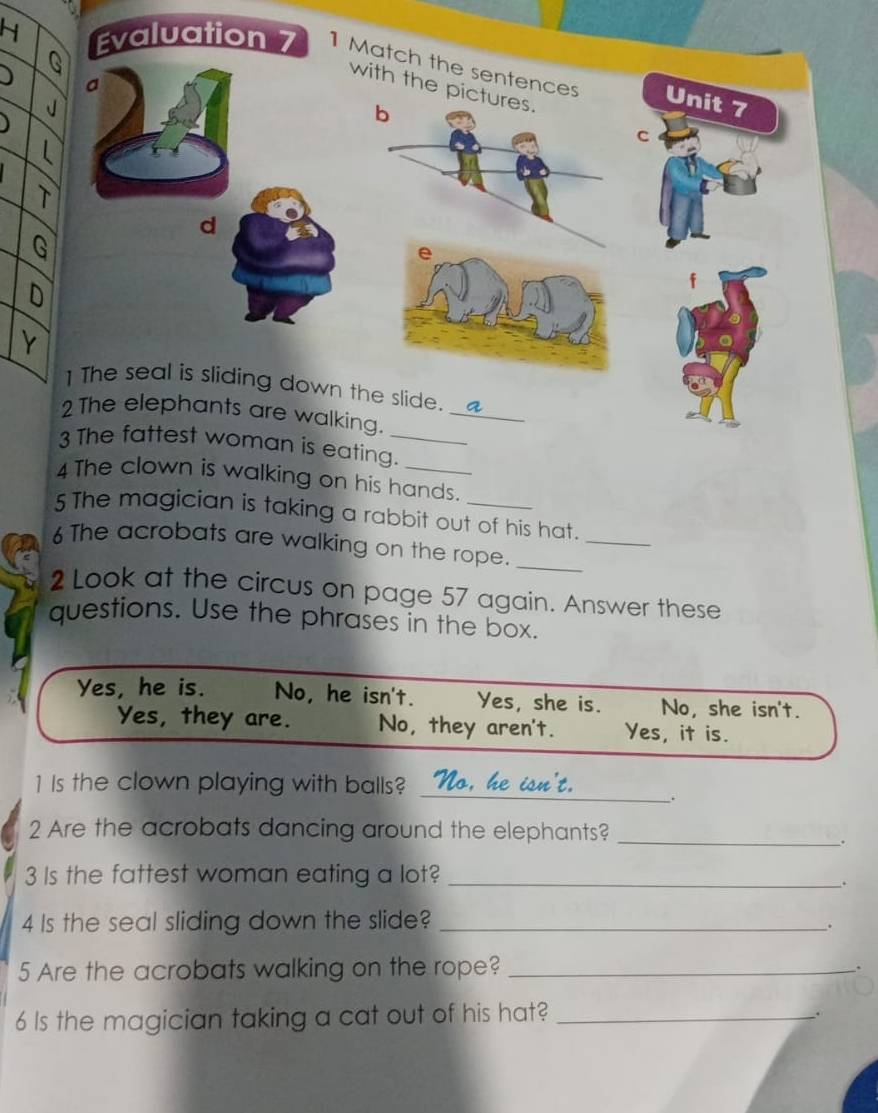 H
G
J
L
T
G
D
Y
Evaluation 7
1 Match the sentences
with the pictures.
Unit 7
a
b
c
d
e
f
1 The seal is sliding down the slide. a
2 The elephants are walking.
3 The fattest woman is eating.
4 The clown is walking on his hands.
5 The magician is taking a rabbit out of his hat.
6 The acrobats are walking on the rope.
2 Look at the circus on page 57 again. Answer these
questions. Use the phrases in the box.
Yes, he is. No, he isn't. Yes, she is. No, she isn't.
Yes, they are. No, they aren't. Yes, it is.
1 Is the clown playing with balls? No, he isn't.
2 Are the acrobats dancing around the elephants?
3 Is the fattest woman eating a lot?
4 Is the seal sliding down the slide?
5 Are the acrobats walking on the rope?
6 Is the magician taking a cat out of his hat?